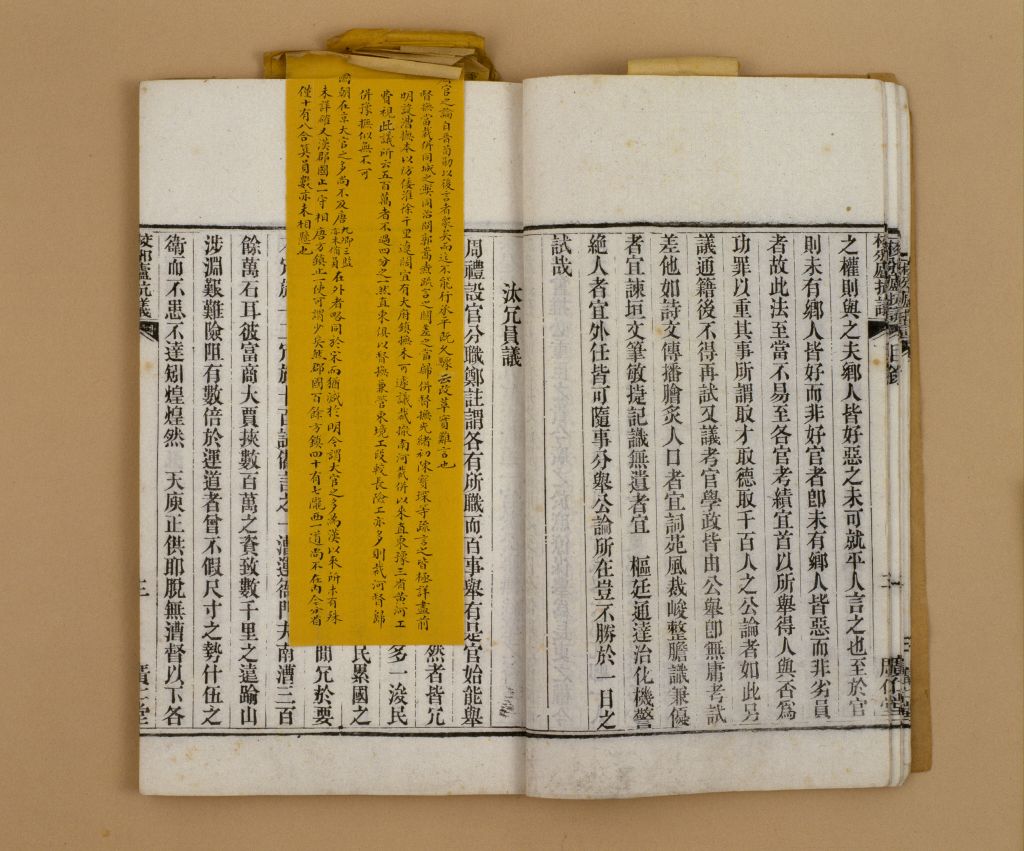 之權則與之夫鄉人皆好惡之未可就平人言之也至於官
則未有鄉人皆好而非好官者卽未有鄉人皆惡而非劣員
者故此法至當不易至各官考績宜首以所舉得人與否爲
功罪以重其事所謂取才取德取千百人之公論者如此另
議通籍後不得再試又議考官學政皆由公舉卽無庸考試
差他如詩文傳播膾炙人口者宜詞苑風裁峻整膽識兼優
者宜諫垣文筆敏捷記識無遺者宜 樞廷通達治化機警
絶人者宜外任皆可隨事分舉公論所在豈不勝於一日之
試哉
汰冗員議
周禮設官分職鄭註謂各有所職而百事舉有是官始能舉
官之論自晉荀勗以後言者衆矣而迄不能行承平旣久驟云改革實難言也
督撫當裁併同城之弊同治間郭嵩燾疏言之闓差之當歸併督撫光緒初陳寶琛等疏言之皆極詳盡前
明設漕撫本以防倭淮徐千里遼闊宜有大府鎮撫未可遽議裁撤南河裁併以來直東豫三省黃河工
費視此議所云五百萬者不過四分之一然直東俱以督撫兼營東境工段較長險工亦多則裁河督歸
併豫撫似無不可
國朝在京大官之多尚不及唐九卿三監亦未備員在外者略同於宋而猶減於明今謂大官之多爲漢以來所未有殊
未詳確又漢郡國止一守相唐方鎮止一使可謂少矣然郡國百餘方鎮四十有七隴西一道尚不在內今分省
僅十有八合算員數亦未相懸也
然者皆冗
多一浚民
民累國之
閒冗於要
一漕運衙門夫南漕三百
餘萬石耳彼富商大賈挾數百萬之資致數千里之遠踰山
涉淵艱難險阻有數倍於運道者曾不假尺寸之勢什伍之
衞而不患不達矧煌煌然 天庾正供耶脫無漕督以下各
校邠廬抗議
三
廣仁堂